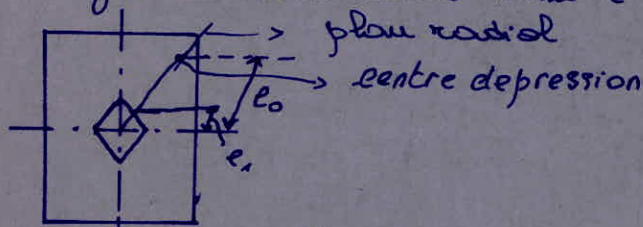 plan radial
centre depression
e₀
e₁